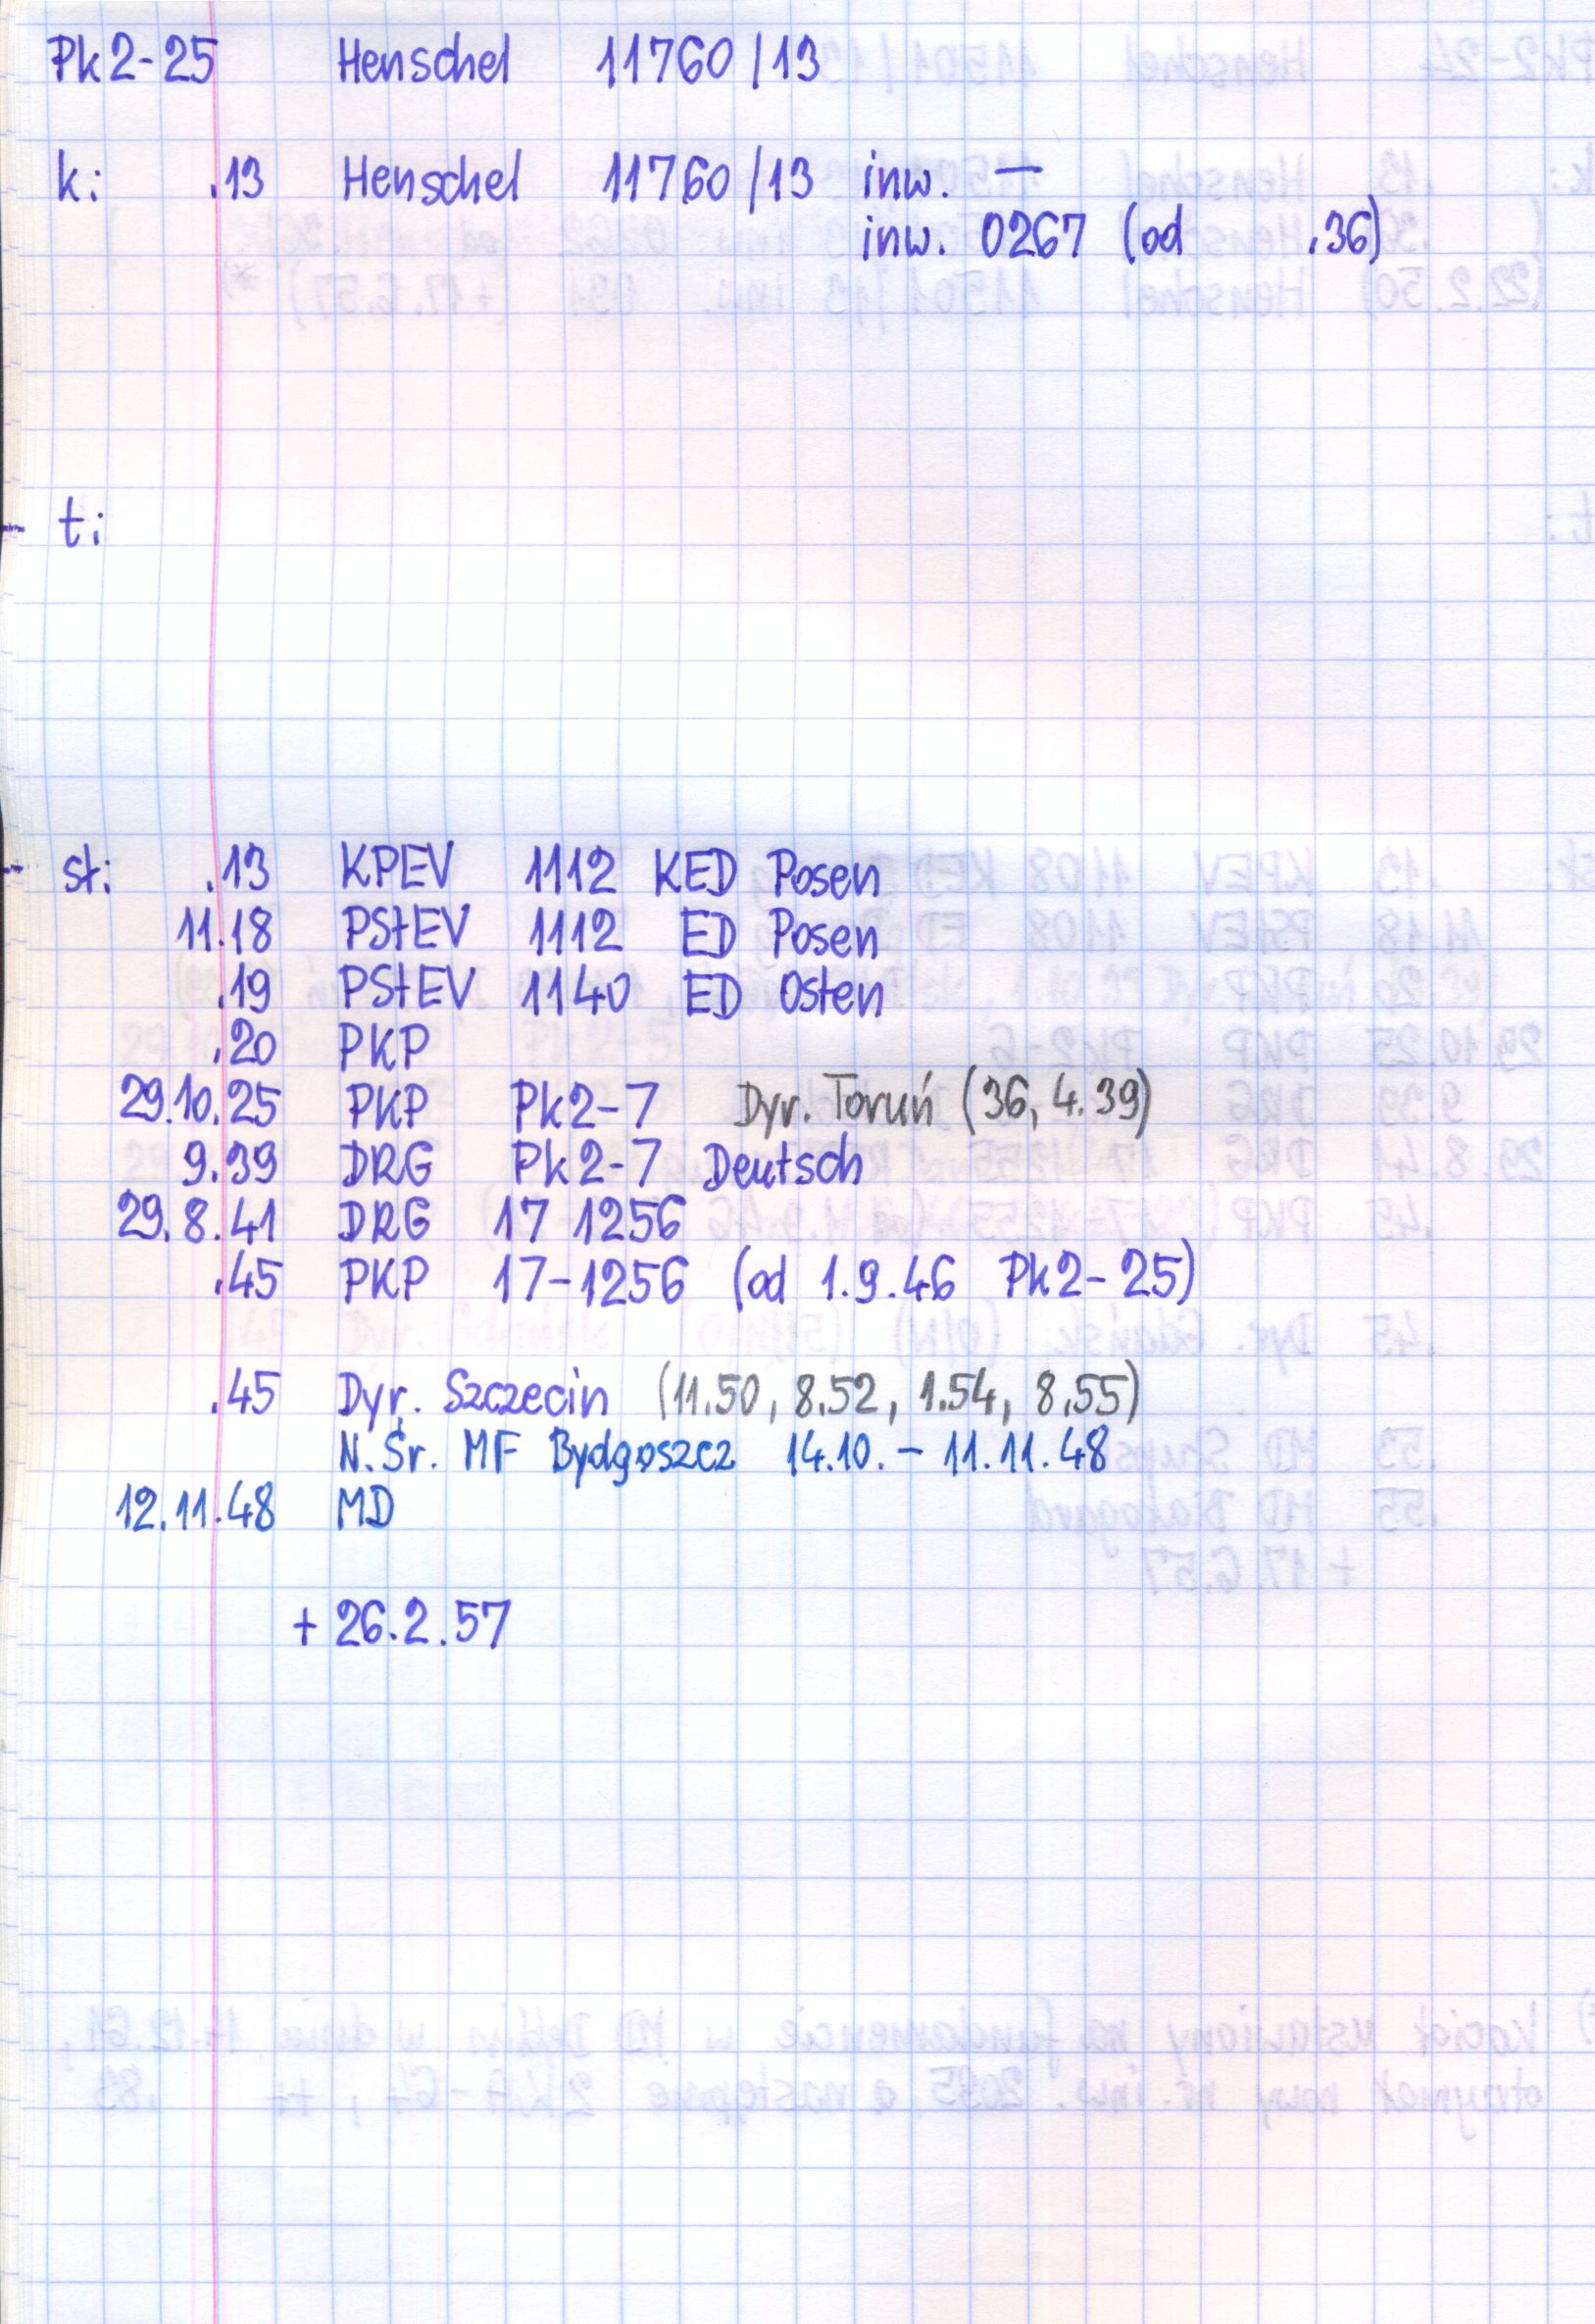 Pk2-25 Henschel 11760/13
k: .13 Henschel 11760/13 inw. —
inw. 0267 (od .36)
t:
st: .13 KPEV 1112 KED Posen
11.18 PStEV 1112 ED Posen
.19 PStEV 1140 ED Osten
.20 PKP
29.10.25 PKP Pk2-7 Dyr. Toruń (36, 4.39)
9.39 DRG Pk2-7 Deutsch
29.8.41 DRG 17 1256
.45 PKP 17-1256 (od 1.9.46 Pk2-25)
.45 Dyr. Szczecin (11.50, 8.52, 1.54, 8.55)
N.Śr. MF Bydgoszcz 14.10. - 11.11.48
12.11.48 MD
+ 26.2.57